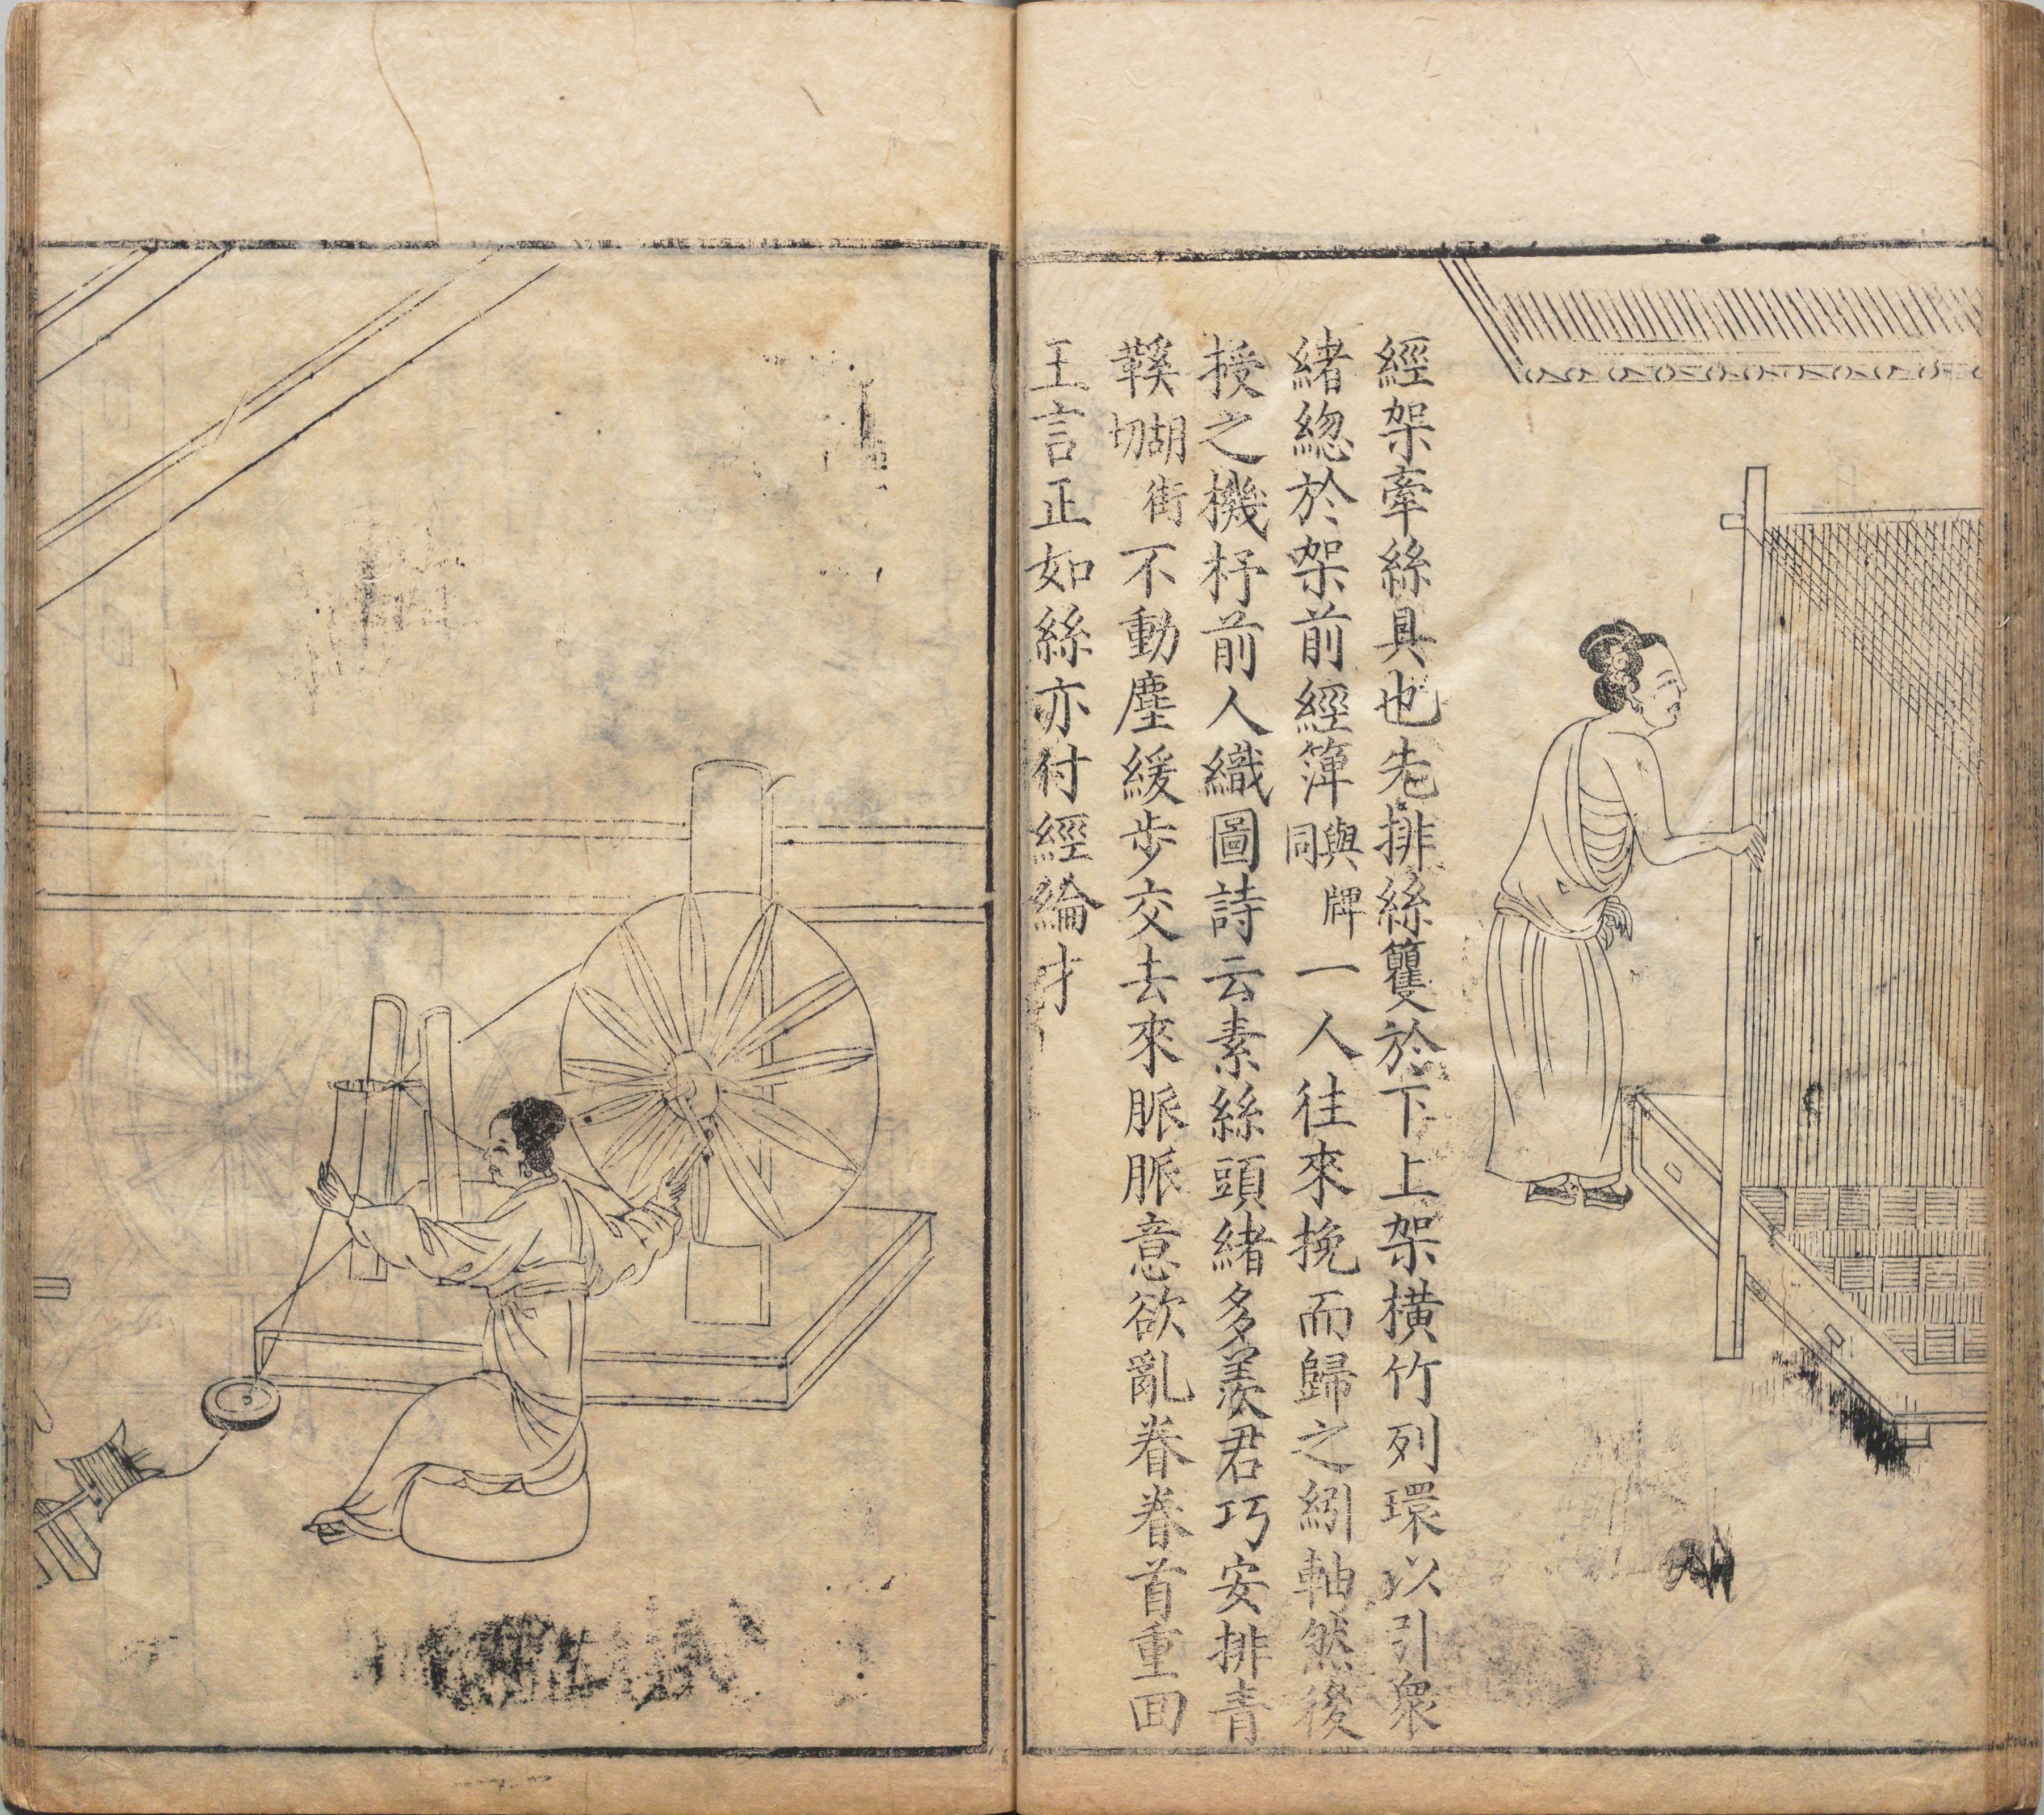 經架牽絲具也先排絲籰於下上架橫竹列環以引衆
緒緫於架前經簰與牌同一人往來挽而歸之紖軸然後
授之機杼前人織圖詩云素絲頭緒多羡君巧安排青
鞵切瑚街不動塵緩步交去來脈脈意欲亂眷眷首重回
王言正如絲亦付經綸才